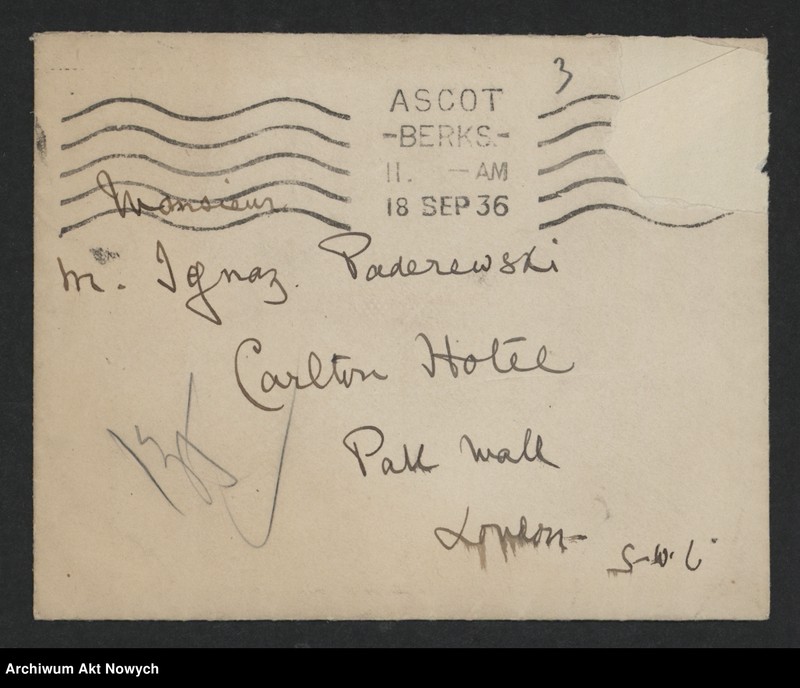 3
ASCOT
-BERKS.-
11. — AM
18 SEP 36
Monsieur
M. Ignaz. Paderewski
Carlton Hotel
Pall Mall
London-
S.W.1.
Archiwum Akt Nowych